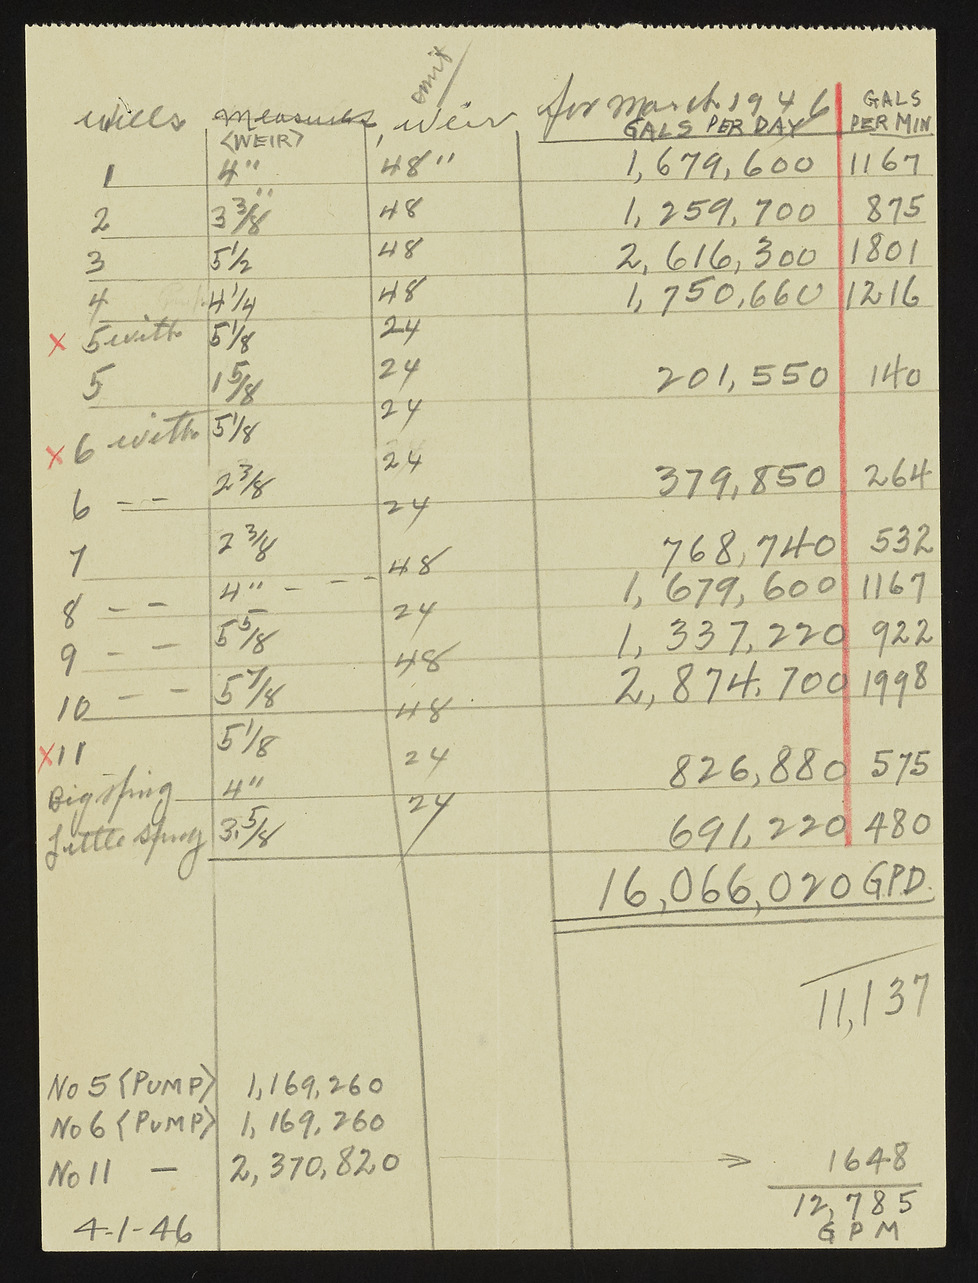 omit
wells measures, weir for March 1946 GALS
<WEIR> GALS PER DAY PER MIN
1 4" 48" 1,679,600 1167
2 3 3/8" 48 1,259,700 875
3 5 1/2 48 2,616,300 1801
4 4 1/4 48 1,750,660 1216
x 5 with 5 1/8 24
5 1 5/8 24 201,550 140
x 6 with 5 1/8 24
6 -- 2 3/8 24 379,850 264
7 2 3/8 24 768,740 532
8 -- 4" - -- 48 1,679,600 1167
9 -- 5 5/8 24 1,337,220 922
10 -- 5 7/8 48 2,874,700 1998
x 11 5 1/8 48
Big spring 4" 24 826,880 575
Little spring 3.5/8 24 691,220 480
16,066,020 GPD.
11,137
No 5 <PUMP> 1,169,260
No 6 <PUMP> 1,169,260
No 11 — 2,370,820 → 1648
12,785
4-1-46 GPM